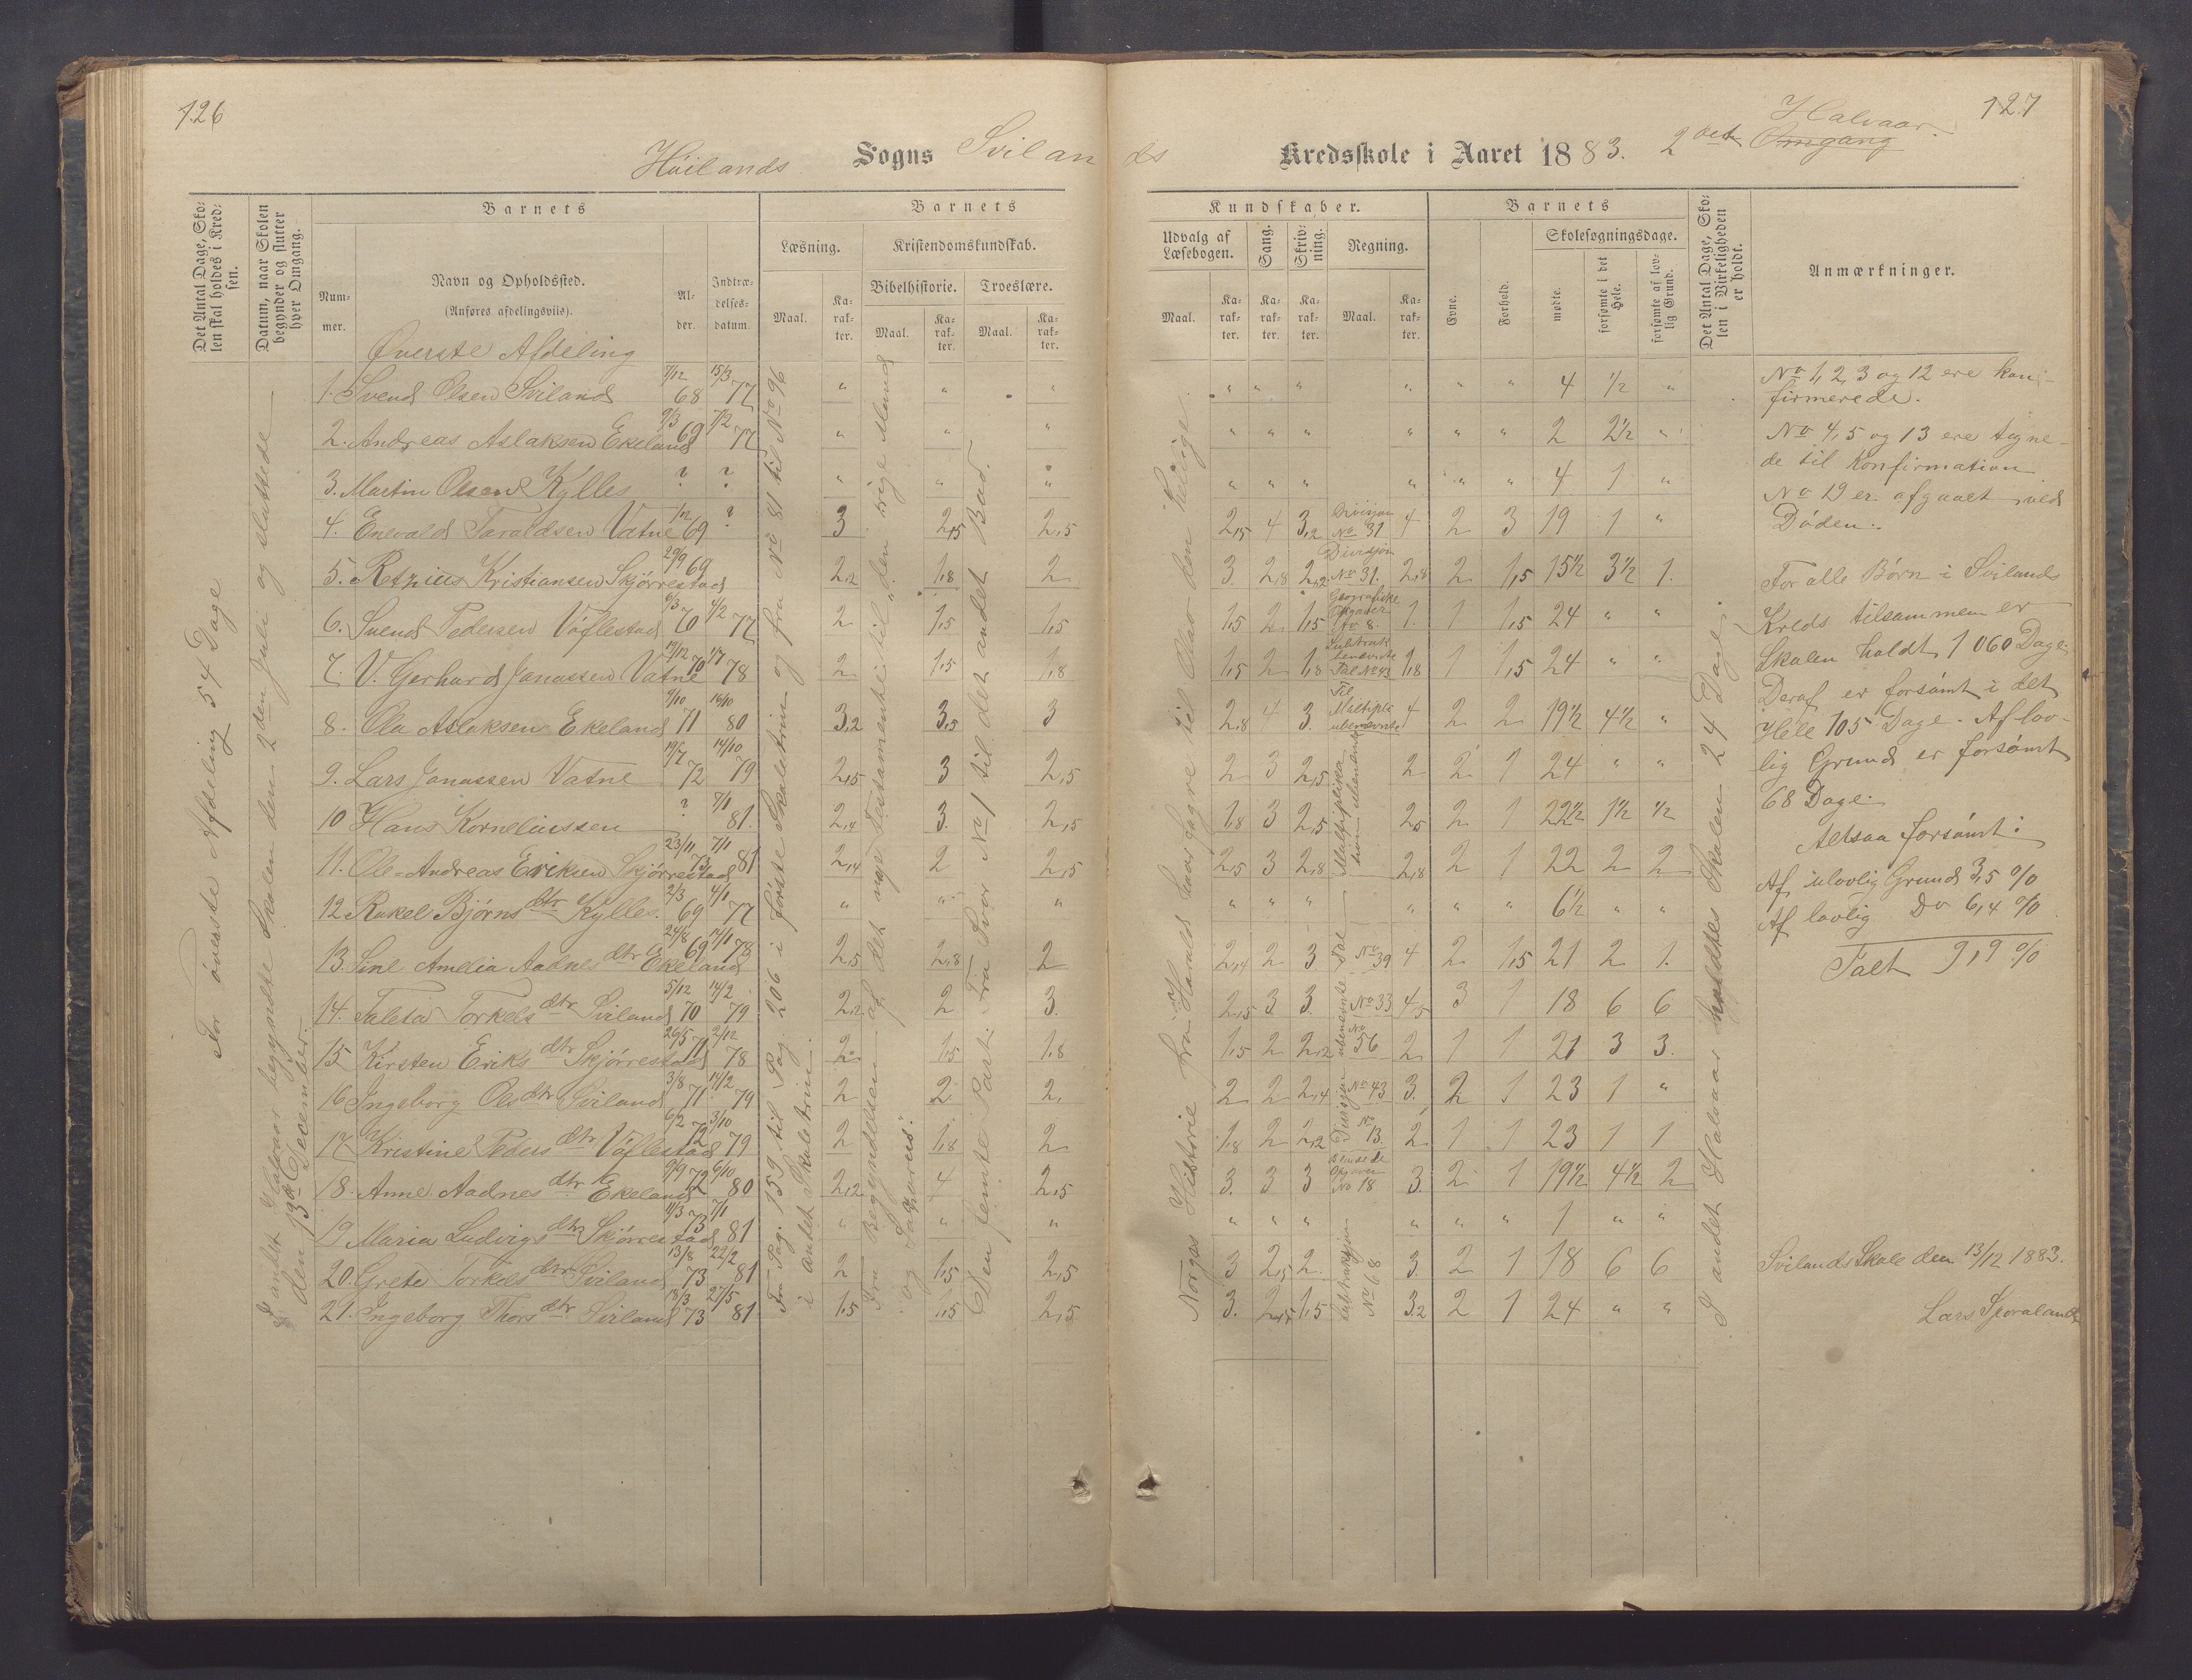 126
Höilands Sogns Svilan
Det Antal Dage, Sko-
len skal holdes i Kred-
sen.
Datum, naar Skolen
begynder og slutter
hver Omgang.
Barnets
Num-
mer.
Navn og Opholdssted.
(Anføres afdelingsviis).
Al-
der.
Indtræ-
delses-
datum.
Barnets
Læsning.
Maal.
Ka-
rak-
ter.
Kristendomskundskab.
Bibelhistorie.
Maal.
Ka-
rak-
ter.
Troeslære.
Maal.
Ka-
rak-
ter.
For øverste Afdeling 54 Dage
I andet Halvaar begyndte Skolen den 2den Juli og sluttede
den 13de December.
Øverste Afdeling
1. Svend Olsen Sviland 7/12 68 15/3 77 " " "
2. Andreas Aslaksen Ekeland 9/3 69 7/2 77 " " "
3. Martin Olsen Kylles ? ? " " "
4. Enevald Taraldsen Vatne 69 ? 3 2,15 2,5
5. Retnius Kristiansen Skjørrestad 29/9 69 2,12 1,8 2
6. Svend Pedersen Vöflestad 6/3 70 4/2 77 2 1,5 1,5
7. V. Gerhard Janassen Vatne 19/12 70 1/7 78 2 1,5 1,8
8. Ola Aslaksen Ekeland 9/10 71 16/10 80 3,2 3,5 3
9. Lars Janassen Vatne 72 14/10 79 2,15 3 2,5
10 Hans Korneliussen ? 7/1 81. 2,4 3. 2,15
11. Ole-Andreas Eriksen Skjørrestad 23/11 73 7/1 81 2,14 2 2,15
12 Rakel Bjørnsdtr Kylles. 2/3 69 4/1 77 " " "
13. Sine Amelia Aadnesdtr Ekeland 24/8 69 14/1 78 2,5 2,8 2
14. Taleta Torkelsdtr Sviland 5/12 70 14/2 79 2,2 2 3.
15 Kirsten Eriksdtr Skjørrestad 26/5 71 2/12 78 2 1,5 1,8
16 Ingeborg Olsdtr Sviland 3/8 71 14/2 79 2 2 2,
17 Kristine Pedersdtr Vöflestad 6/2 72 3/10 79 2 1,8 2
18. Anne Aadnesdtr Ekeland 9/9 72 6/10 80 2,12 4 2,15
19 Maria Ludvigsdtr Skjørrestad 11/3 73 7/1 81 " " "
20. Grete Torkelsdtr Sviland 13/8 73 22/2 81 2 1,5 2,5
21. Ingeborg Thorsdtr Sviland 18/3 73 27/5 81 1,5 1,5 2,5
Fra Pag. 159 til Pag. 206 i første Skoletrin og fra No 81 til No 96
i andet Skoletrin.
Fra Begyndelsen af det nye Testamente til "den rige Mand
og Lazarus".
Den femte Part: Fra Svar No 1 til det andet Bud.
127
ds Kredsskole i Aaret 1883. 2det Omgang Halvaar.
Kundskaber.
Udvalg af
Læsebogen.
Maal.
Ka-
rak-
ter.
Sang.
Ka-
rak-
ter.
Skriv-
ning.
Ka-
rak-
ter.
Regning.
Maal.
Ka-
rak-
ter.
Barnets
Evne.
Forhold.
Skolesøgningsdage.
mødte.
forsømte i det
Hele.
forsømte af lov-
lig Grund.
Det Antal Dage, Sko-
len i Virkeligheden
er holdt.
Anmærkninger.
Norges Historie fra Harald haarfagre til Olav den hellige.
" " " " " " 4 1/2 "
" " " " " " 2 2 1/2 "
" " " " " " 4 1 "
2,15 4 3,2 Divisjon No 31 4 2 3 19 1 "
3. 2,8 2,12 Divisjon No 31. 2,8 2 1,5 15 1/2 3 1/2 1.
1,5 2 1,5 Geografiske Opgaver No 8. 1. 1 1,5 24 " "
1,5 2 1,8 Tal No 43 1,8 1 1,5 24 " "
2,8 4 3. 4 2 2 19 1/2 4 1/2 "
2 3 2,5 2 2 1 24 " "
1,8 3 2,5 2,5 2 1 22 1/2 1 1/2 1/2
2,5 3 2,8 2,8 2 1 22 2 2
" " " " " " 6 1/2 " "
2,4 2 3 No 39 4 2 1,5 21 2 1.
2,15 3 3. No 33 4,5 3 1 18 6 6
1,5 2 2,12 No 56 2 1 1 21 3 3.
2 2 2,4 No 43 3. 2 1 23 1 "
1,8 2 2,12 No 13. 2 1 1 23 1 1
3. 3 3 Opgaver No 18 3. 2 1 19 1/2 4 1/2 2
" " " " " " 1 " "
3 2,5 2 3. 2 1 18 6 6
3. 2,15 1,5 No 68 3,2 2 1 24 " "
I andet Halvaar holdtes Skolen 24 Dage.
No 1, 2, 3 og 12 ere kon-
firmerede.
No 4, 5 og 13 ere tegne-
de til Konfirmation
No 19 er afgaaet ved
Døden.
For alle Børn i Svilands
Kreds tilsammen er
Skolen holdt 1060 Dage.
Deraf er forsømt i det
Hele 105 Dage. Af lov-
lig Grund er forsømt
68 Dage.
Altsaa forsømt:
Af ulovlig Grund 3,5 %
Af lovlig Do 6,4 %
Talt 9,9 %
Svilands Skole den 13/12 1883.
Lars